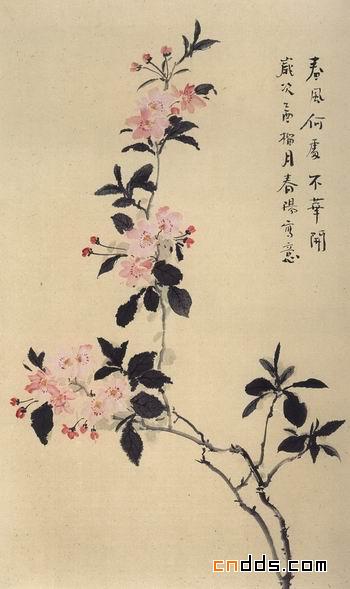 春风何處不華開
歲次乙酉榴月春陽寫意
cndds.com